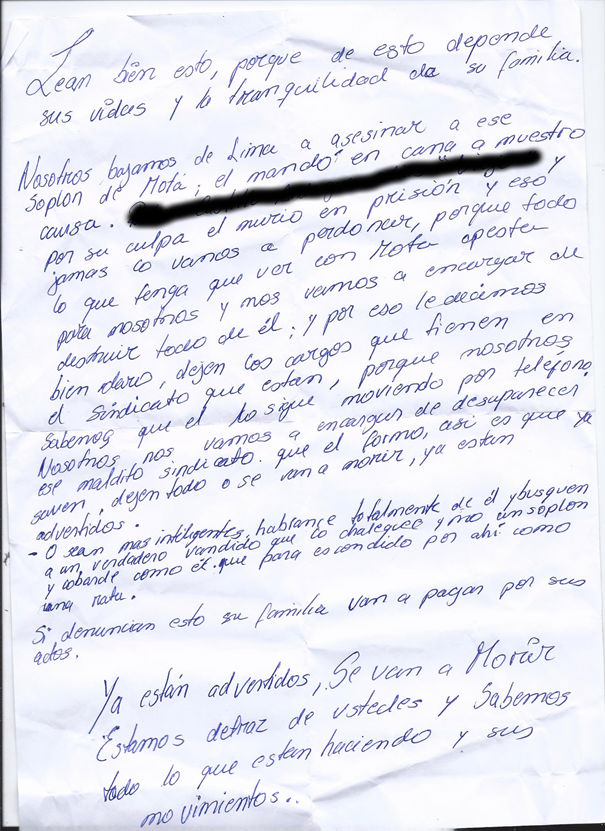 Lean bien esto, porque de esto depende
sus vidas y la tranquilidad da su familia.
Nosotros bajamos de Lima a asesinar a ese
soplon de Mota; el mandó en cana a muestro
causa.
por su culpa el murio en prisión y eso y
jamas lo vamos a perdonar, porque todo
lo que tenga que ver con Mota apesta
para nosotros y nos vamos a encargar de
destruir todo de él; y por eso le decimos
bien claro, dejen los cargos que tienen en
el Sindicato que estan, porque nosotros
Sabemos que el lo sigue moviendo por teléfono
Nosotros nos vamos a encargar de desaparecer
ese maldito sindicato. que el formo, así es que ya
saven, dejen todo o se van a morir, ya estan
advertidos.
- O sean mas inteligentes, habrance totalmente de él y busquen
a un verdadero vandido que lo chalequee y no un soplon
y cobarde como él. que para escondido por ahí como
una rata.
Si denuncian esto su familia van a pagar por sus
actos.
Ya están advertidos, Se van a Morir
Estamos detraz de ustedes y Sabemos
todo lo que estan haciendo y sus
movimientos..